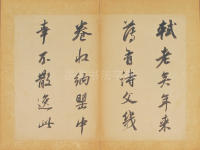 軾老矣年來
薄有诗文錢
卷收納罌中
幸不散逸此